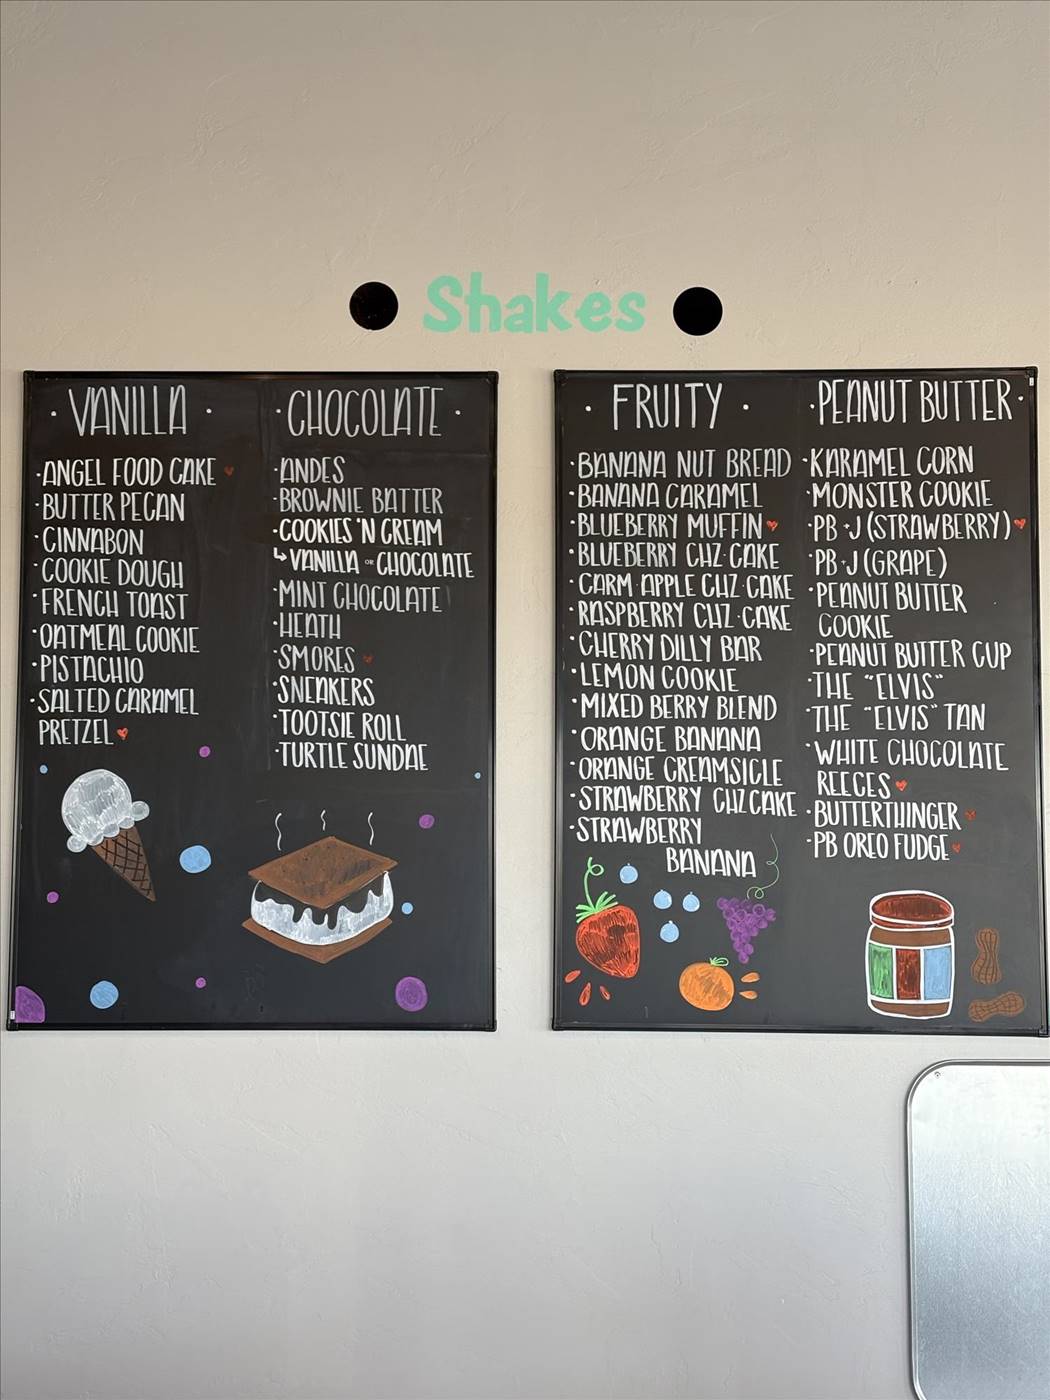 Shakes
· VANILLA ·
·ANGEL FOOD CAKE
·BUTTER PECAN
·CINNABON
·COOKIE DOUGH
·FRENCH TOAST
·OATMEAL COOKIE
·PISTACHIO
·SALTED CARAMEL
PRETZEL
·CHOCOLATE·
·ANDES
·BROWNIE BATTER
·COOKIES 'N CREAM
↳VANILLA OR CHOCOLATE
·MINT CHOCOLATE
·HEATH
·SMORES
·SNEAKERS
·TOOTSIE ROLL
·TURTLE SUNDAE
· FRUITY ·
·BANANA NUT BREAD
·BANANA CARAMEL
·BLUEBERRY MUFFIN
·BLUEBERRY CHZ·CAKE
·CARM·APPLE CHZ·CAKE
·RASPBERRY CHZ·CAKE
·CHERRY DILLY BAR
·LEMON COOKIE
·MIXED BERRY BLEND
·ORANGE BANANA
·ORANGE CREAMSICLE
·STRAWBERRY CHZ CAKE
·STRAWBERRY
BANANA
·PEANUT BUTTER·
·KARAMEL CORN
·MONSTER COOKIE
·PB+J (STRAWBERRY)
·PB+J (GRAPE)
·PEANUT BUTTER
COOKIE
·PEANUT BUTTER CUP
·THE "ELVIS"
·THE "ELVIS" TAN
·WHITE CHOCOLATE
REECES
·BUTTERTHINGER
·PB OREO FUDGE